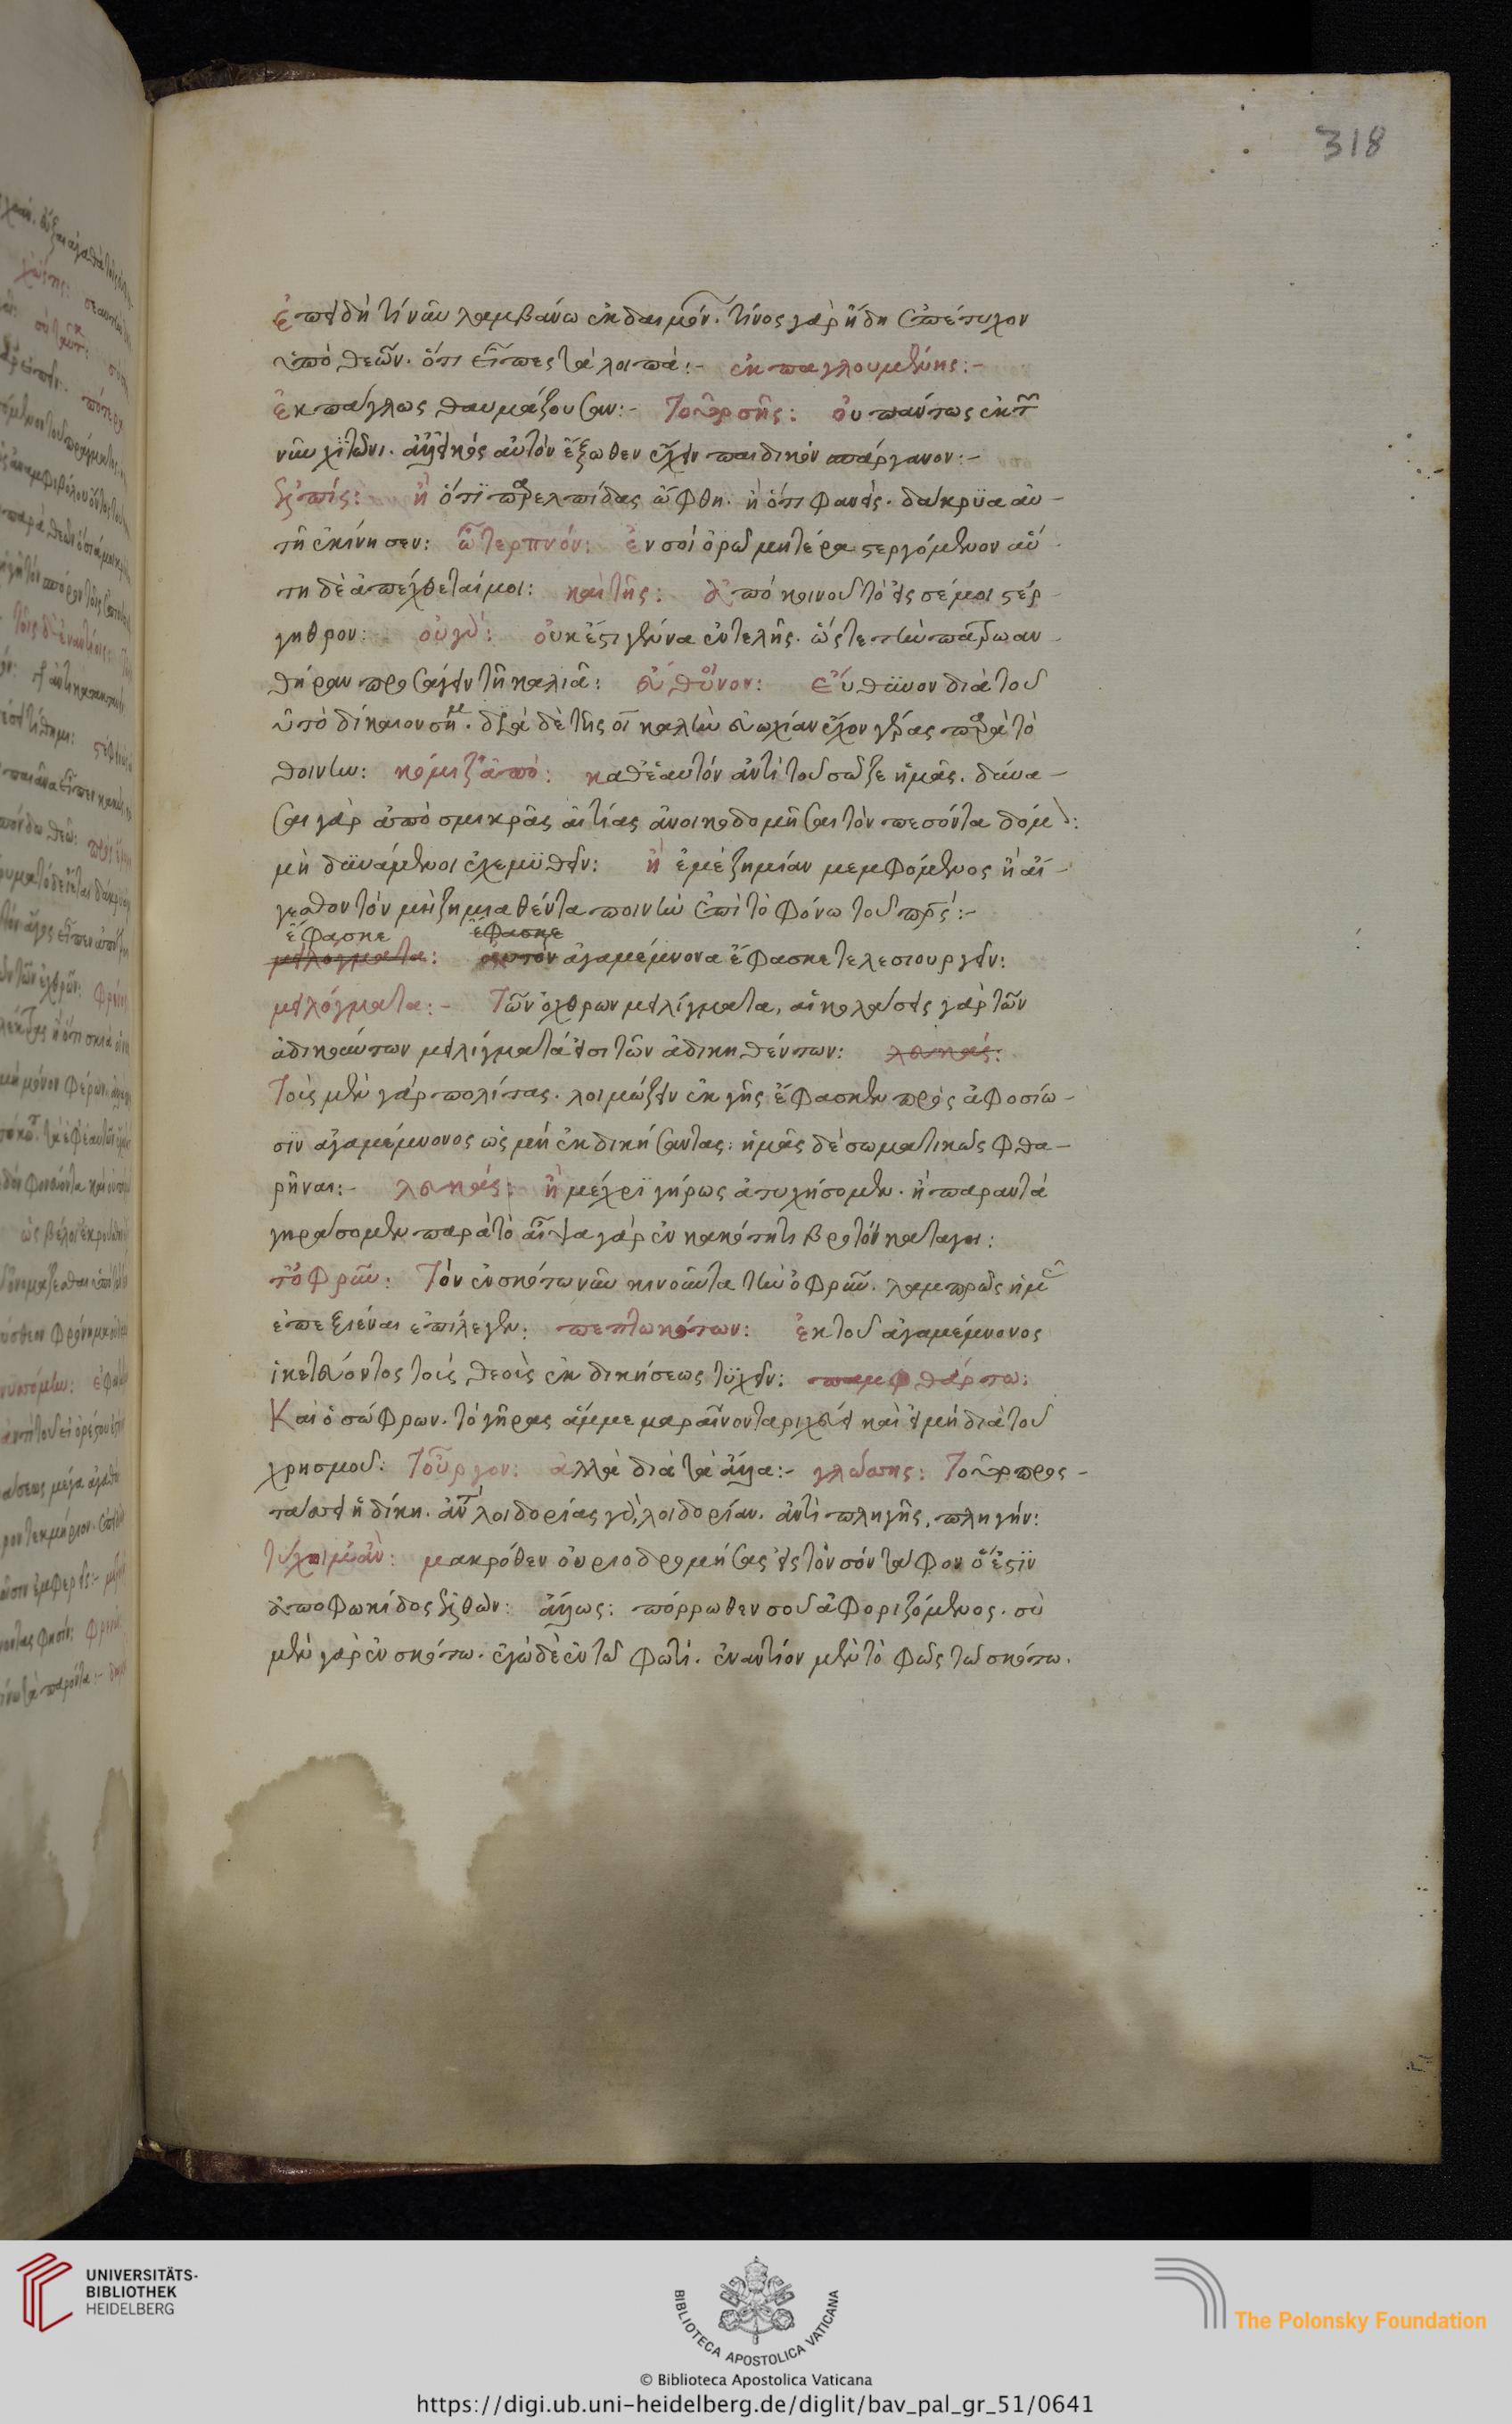 318
ἐπειδὴ τί νῦν λαμβάνω ἐκ δαιμόν. τίνος γὰρ ἤδη ἐπέτυχον
ὑπὸ θεῶν. ὅτι εἶπες τὰ λοιπά:- ἐκπαγλουμένης:-
ἐκπάγλως θαυμάζουσαν:- τοῦ οὐ πάντως ἐκ τ
νῦν χιτῶνι. αὐτὸν ἔξωθεν ἔχειν παιδικὸν σπάργανον:-
ἢ ὅτι παρ ἐλπίδας ὤφθη. ἢ ὅτι φανείς. δάκρυα αὐ-
τῇ ἐκίνησεν: ὦ τερπνόν: ἐν σοὶ ὁρῶ μητέρα στεργόμενον αὕ-
τη δὲ ἀπέχθεταί μοι: καὶ τῆς: ἀπὸ κοινοῦ τὸ εἰς σέ μοι στέρ-
γηθρον: οὐ γὰρ: οὐκ ἔστι γέννα ἐντελής. ὥστε τὴν πατρῴαν
θήραν προσάγειν τῇ καλιᾷ: εὔθοινον: εὔθυνον διὰ τοῦ
ὑπὸ δίκαιον σῆμ. δεξιὰ δὲ τῆς οἱ καλὴν εὐωχίαν ἔχον γέρας παρὰ τὸ
θοίνην: κόμιζ' ἀπό: καθ' ἑαυτὸν ἀντὶ τοῦ σῶζε ἡμᾶς. δύνα-
σαι γὰρ ἀπὸ σμικρᾶς αἰτίας ἀνοικοδομῆσαι τὸν πεσόντα δόμον:
μὴ δυνάμενοι ἐχεμυθεῖν: ἢ ἐμὲ ζημίαν μεμφόμενος ἢ αἴ-
γεσθον τὸν μὴ ζημιαθέντα ποινὴν ἐπὶ τῷ φόνῳ τοῦ πρς:-
ἔφασκε ἔφασκε
μειλόγματα: αὐτὸν ἀγαμέμνονα ἔφασκε τελεσιουργεῖν:
μειλόγματα:- τῶν ἐχθρῶν μειλίγματα, αἱ κολάσεις γὰρ τῶν
ἀδικούντων μειλίγματά εἰσι τῶν ἀδικηθέντων: λευκάς:
τοῖς μὲν γὰρ πολίτας. λοιμώξειν ἐκ γῆς ἔφασκεν πρὸς ἀφοσίω-
σιν ἀγαμέμνονος ὡς μὴ ἐκδικήσαντας: ἡμᾶς δὲ σωματικῶς φθα-
ρῆναι:- λευκάς: ἢ μέχρι γήρως ἀτυχήσομεν. ἢ παραυτὰ
γηράσομεν παρὰ τὸ αἶψα γὰρ ἐν κακότητι βροτὸν καταγει:
τ' ὀφρῦν: τὸν ἐν σκότῳ νῦν κινοῦντα τὴν ὀφρῦν. λαμπρῶς ἡμ
ἐπεξιέναι ἐπίλεγεν: πεπτωκότων: ἐκ τοῦ ἀγαμέμνονος
ἱκετεύοντος τοῖς θεοῖς ἐκδικήσεως τυχεῖν: παμφθάρτῳ:
Καὶ ὁ σώφρων. τὸ γῆρας ἄμμε μαραῖνον ταριχεύει καὶ εἰ μὴ διὰ τοῦ
χρησμοῦ: τοὖργον: ἀλλὰ διὰ τὰ ἄλλα:- γλώσσης: τοῦ προς-
ἡ δίκη. ἀντὶ λοιδορίας γὰρ, λοιδορίαν. ἀντὶ πληγῆς, πληγήν:
τύχοιμ' ἄν: μακρόθεν οὐριοδρομήσας εἰς τὸν σὸν τάφον ὅ ἐστιν
ἀπὸ φωκίδος ἐλθών: ἄλλως: πόρρωθεν σοῦ ἀφοριζόμενος. σὺ
μὲν γὰρ ἐν σκότῳ. ἐγὼ δὲ ἐν τῷ φωτί. ἐναντίον μὲν τὸ φῶς τῷ σκότῳ.
UNIVERSITÄTS-
BIBLIOTHEK
HEIDELBERG
BIBLIOTECA APOSTOLICA VATICANA
The Polonsky Foundation
© Biblioteca Apostolica Vaticana
https://digi.ub.uni-heidelberg.de/diglit/bav_pal_gr_51/0641